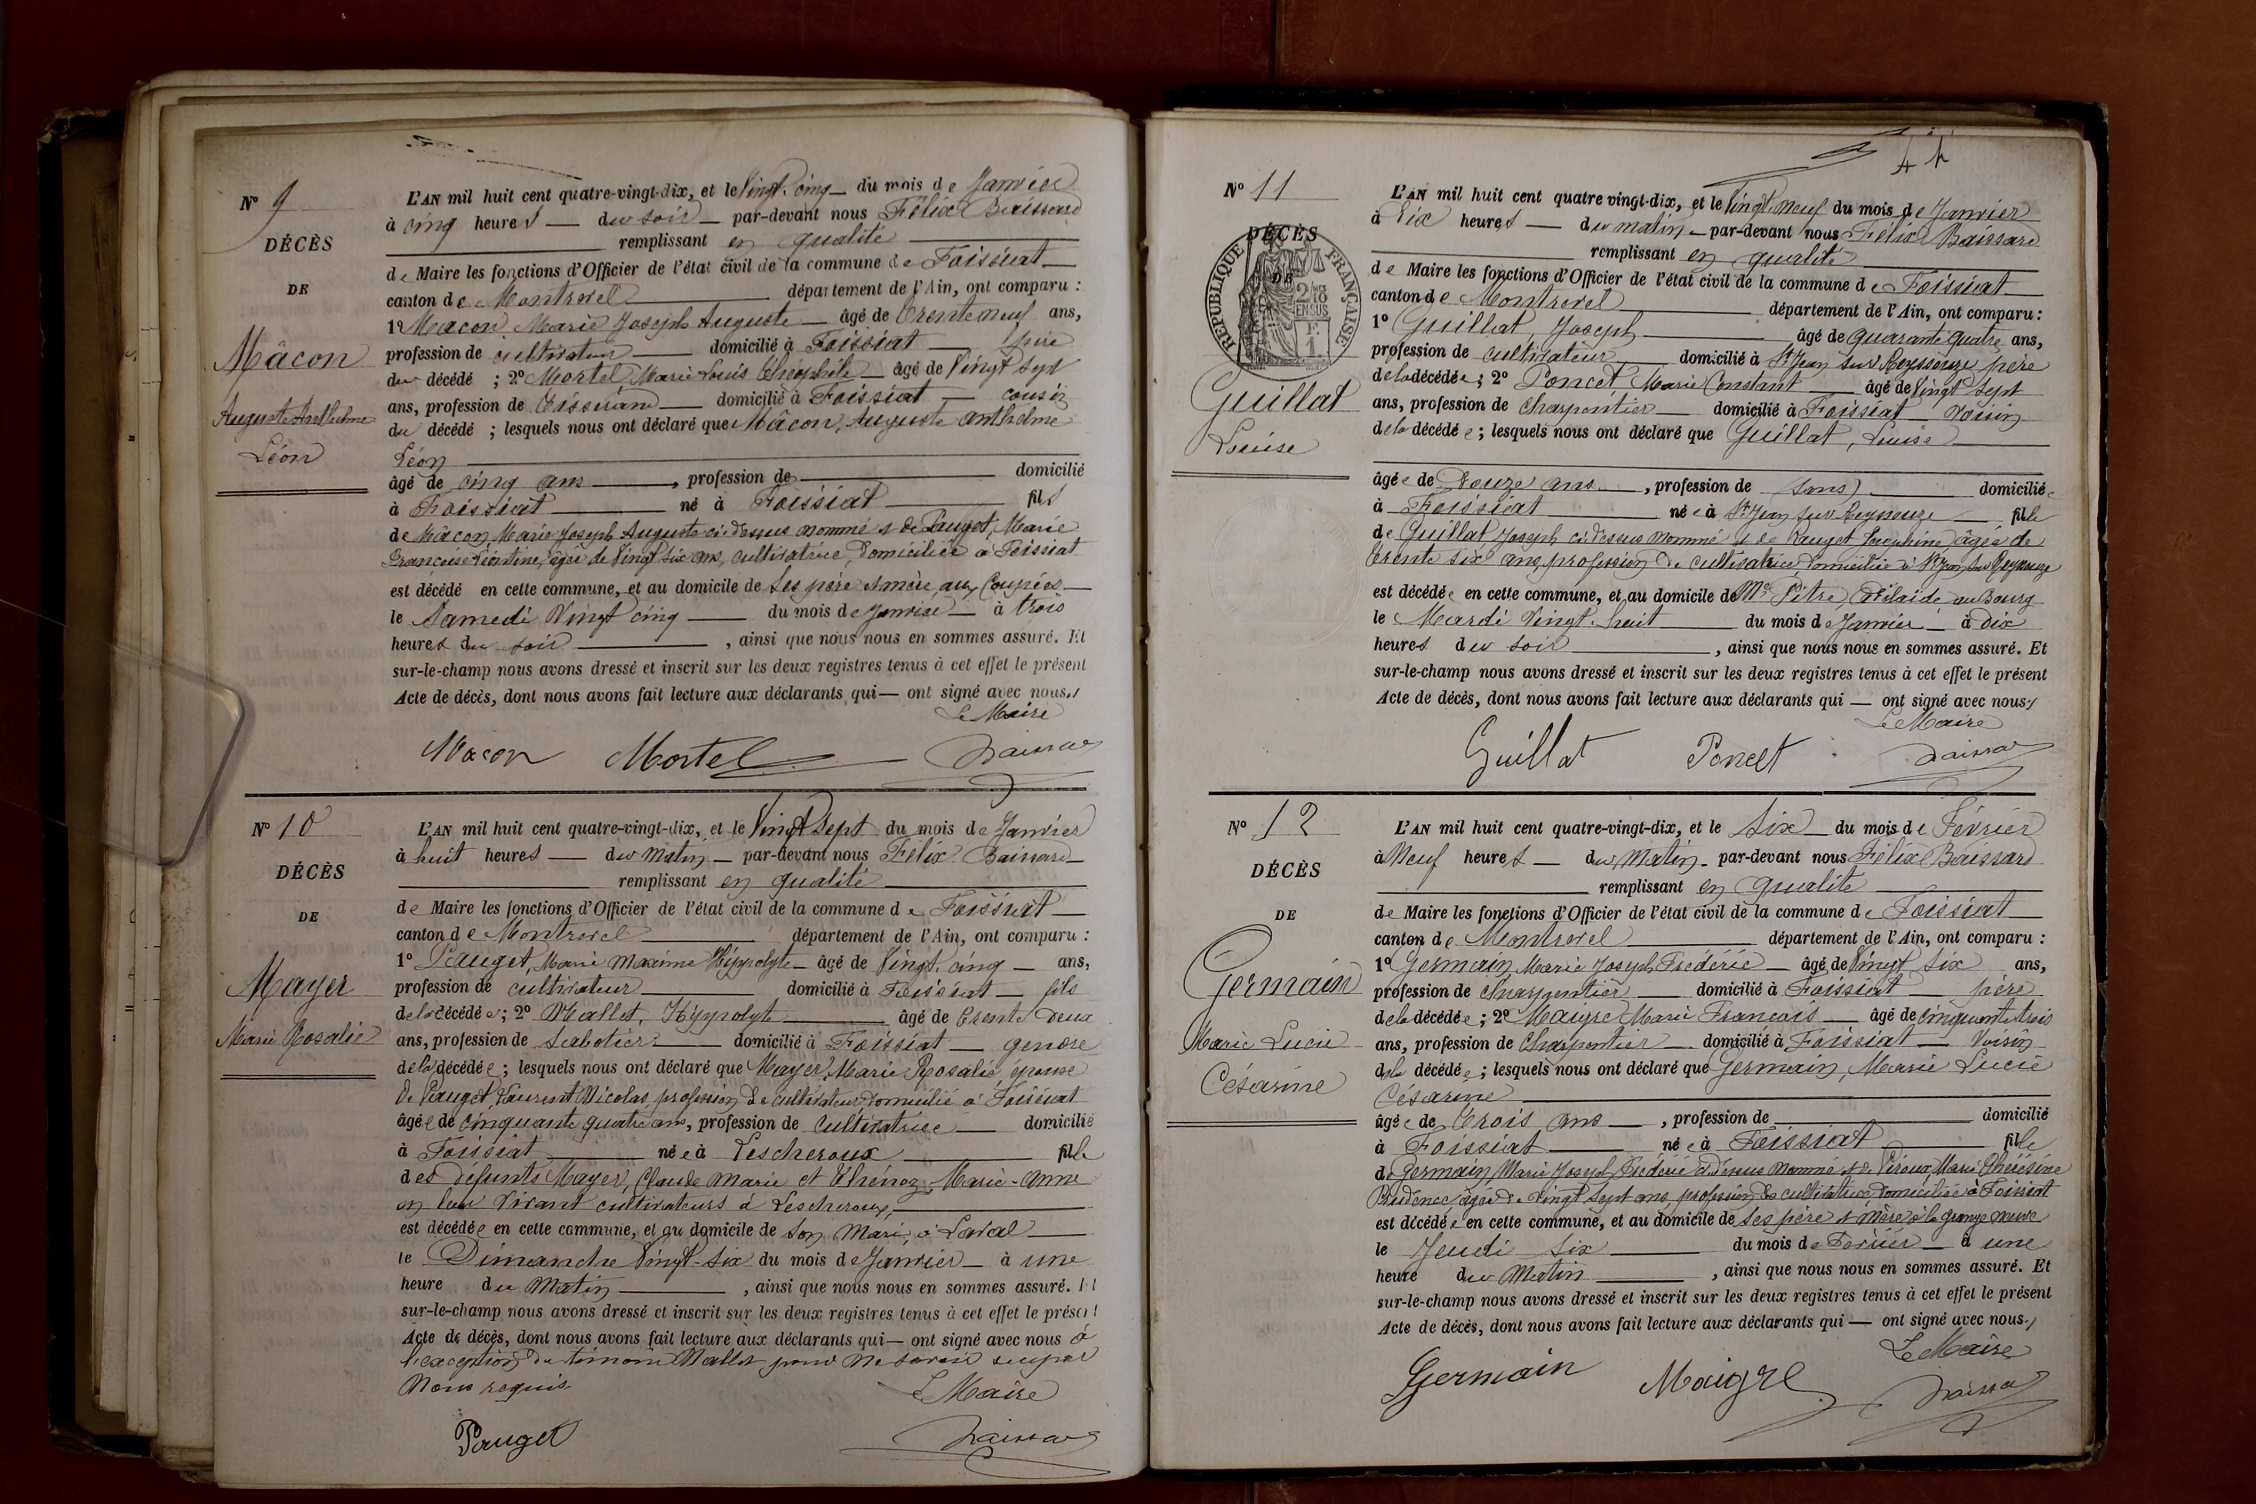 N° 9
DÉCÈS
DE
Mâcon
Auguste Anthelme
Léon
L'AN mil huit cent quatre-vingt-dix, et le Vingt-cinq du mois de Janvier
à cinq heures du soir par-devant nous Félix Baissard
remplissant en qualité
de Maire les fonctions d'Officier de l'état civil de la commune de Foissiat
canton de Montrevel département de l'Ain, ont comparu :
1° Mâcon Marie Joseph Auguste âgé de trente neuf ans,
profession de cultivateur domicilié à Foissiat père
du décédé ; 2° Mortel Marie Louis Théophile âgé de Vingt sept
ans, profession de Tisserand domicilié à Foissiat cousin
du décédé ; lesquels nous ont déclaré que Mâcon, Auguste anthelme
Léon
âgé de cinq ans , profession de domicilié
à Foissiat né à Foissiat fils
de Mâcon, Marie Joseph Auguste ci-dessus nommé & de Pauget, Marie
Françoise Léontine, âgée de Vingt six ans, cultivatrice, domiciliée à Foissiat
est décédé en cette commune, et au domicile de ses père et mère aux Coupées
le Samedi Vingt cinq du mois de Janvier à trois
heures du soir , ainsi que nous nous en sommes assuré. Et
sur-le-champ nous avons dressé et inscrit sur les deux registres tenus à cet effet le présent
Acte de décès, dont nous avons fait lecture aux déclarants qui ont signé avec nous
Le Maire
Macon Mortel Baissard
N° 10
DÉCÈS
DE
Mayer
Marie Rosalie
L'AN mil huit cent quatre-vingt-dix, et le Vingt Sept du mois de Janvier
à huit heures du matin par-devant nous Félix Baissard
remplissant en qualité
de Maire les fonctions d'Officier de l'état civil de la commune de Foissiat
canton de Montrevel département de l'Ain, ont comparu :
1° Pauget, Marie Maxime Hyppolyte âgé de Vingt cinq ans,
profession de cultivateur domicilié à Foissiat fils
de la décédée ; 2° Mallet, Hyppolyte âgé de trente deux
ans, profession de Sabotier domicilié à Foissiat gendre
de la décédée ; lesquels nous ont déclaré que Mayer, Marie Rosalie épouse
de Pauget Laurent Nicolas, profession de cultivateur domicilié à Foissiat
âgée de cinquante quatre ans, profession de cultivatrice domicilié
à Foissiat née à Lescheroux fille
des défunts Mayer, Claude Marie et Thénoz Marie-Anne
en leur vivant cultivateurs à Lescheroux,
est décédée en cette commune, et au domicile de son Mari, à Laval
le Dimanche Vingt-six du mois de Janvier à une
heure du Matin , ainsi que nous nous en sommes assuré. Et
sur-le-champ nous avons dressé et inscrit sur les deux registres tenus à cet effet le présent
Acte de décès, dont nous avons fait lecture aux déclarants qui ont signé avec nous à
l'exception du témoin Mallet pour ne savoir
Nous requis
Le Maire
Pauget Baissard
41
N° 11
DÉCÈS
DE
REPUBLIQUE FRANÇAISE
Guillat
Louise
L'AN mil huit cent quatre vingt-dix, et le Vingt neuf du mois de Janvier
à Dix heures du matin par-devant nous Félix Baissard
remplissant en qualité
de Maire les fonctions d'Officier de l'état civil de la commune de Foissiat
canton de Montrevel département de l'Ain, ont comparu :
1° Guillat, Joseph âgé de quarante quatre ans,
profession de cultivateur domicilié à St Jean sur Reyssouze père
de la décédée ; 2° Poncet, Marie Constant âgé de Vingt Sept
ans, profession de charpentier domicilié à Foissiat Voisin
de la décédée ; lesquels nous ont déclaré que Guillat, Louise
âgée de Douze ans , profession de sans domiciliée
à Foissiat née à St Jean sur Reyssouze fille
de Guillat Joseph ci-dessus nommé & de Pauget Joséphine âgée de
trente six ans, profession de cultivatrice, domiciliée à St Jean sur Reyssouze
est décédée en cette commune, et au domicile de Me Pitre, Adélaïde au Bourg
le Mardi Vingt-huit du mois de Janvier à dix
heures du soir , ainsi que nous nous en sommes assuré. Et
sur-le-champ nous avons dressé et inscrit sur les deux registres tenus à cet effet le présent
Acte de décès, dont nous avons fait lecture aux déclarants qui ont signé avec nous
Le Maire
Guillat Poncet Baissard
N° 12
DÉCÈS
DE
Germain
Marie Lucie
Césarine
L'AN mil huit cent quatre-vingt-dix, et le Six du mois de Février
à Neuf heures du Matin par-devant nous Félix Baissard
remplissant en qualité
de Maire les fonctions d'Officier de l'état civil de la commune de Foissiat
canton de Montrevel département de l'Ain, ont comparu :
1° Germain Marie Joseph Frédéric âgé de Vingt six ans,
profession de charpentier domicilié à Foissiat père
de la décédée ; 2° Maigre Marie François âgé de cinquante trois
ans, profession de Charpentier domicilié à Foissiat Voisin
de la décédée ; lesquels nous ont déclaré que Germain, Marie Lucie
Césarine
âgée de trois ans , profession de domicilié
à Foissiat née à Foissiat fille
de Germain, Marie Joseph Frédéric ci-dessus nommé & de Péroux, Marie Thérésine
Prudence, âgée de Vingt Sept ans, profession de cultivatrice, domiciliée à Foissiat
est décédée en cette commune, et au domicile de ses père & mère à la grange neuve
le Jeudi Six du mois de Février à une
heure du Matin , ainsi que nous nous en sommes assuré. Et
sur-le-champ nous avons dressé et inscrit sur les deux registres tenus à cet effet le présent
Acte de décès, dont nous avons fait lecture aux déclarants qui ont signé avec nous
Le Maire
Germain Maigre Baissard